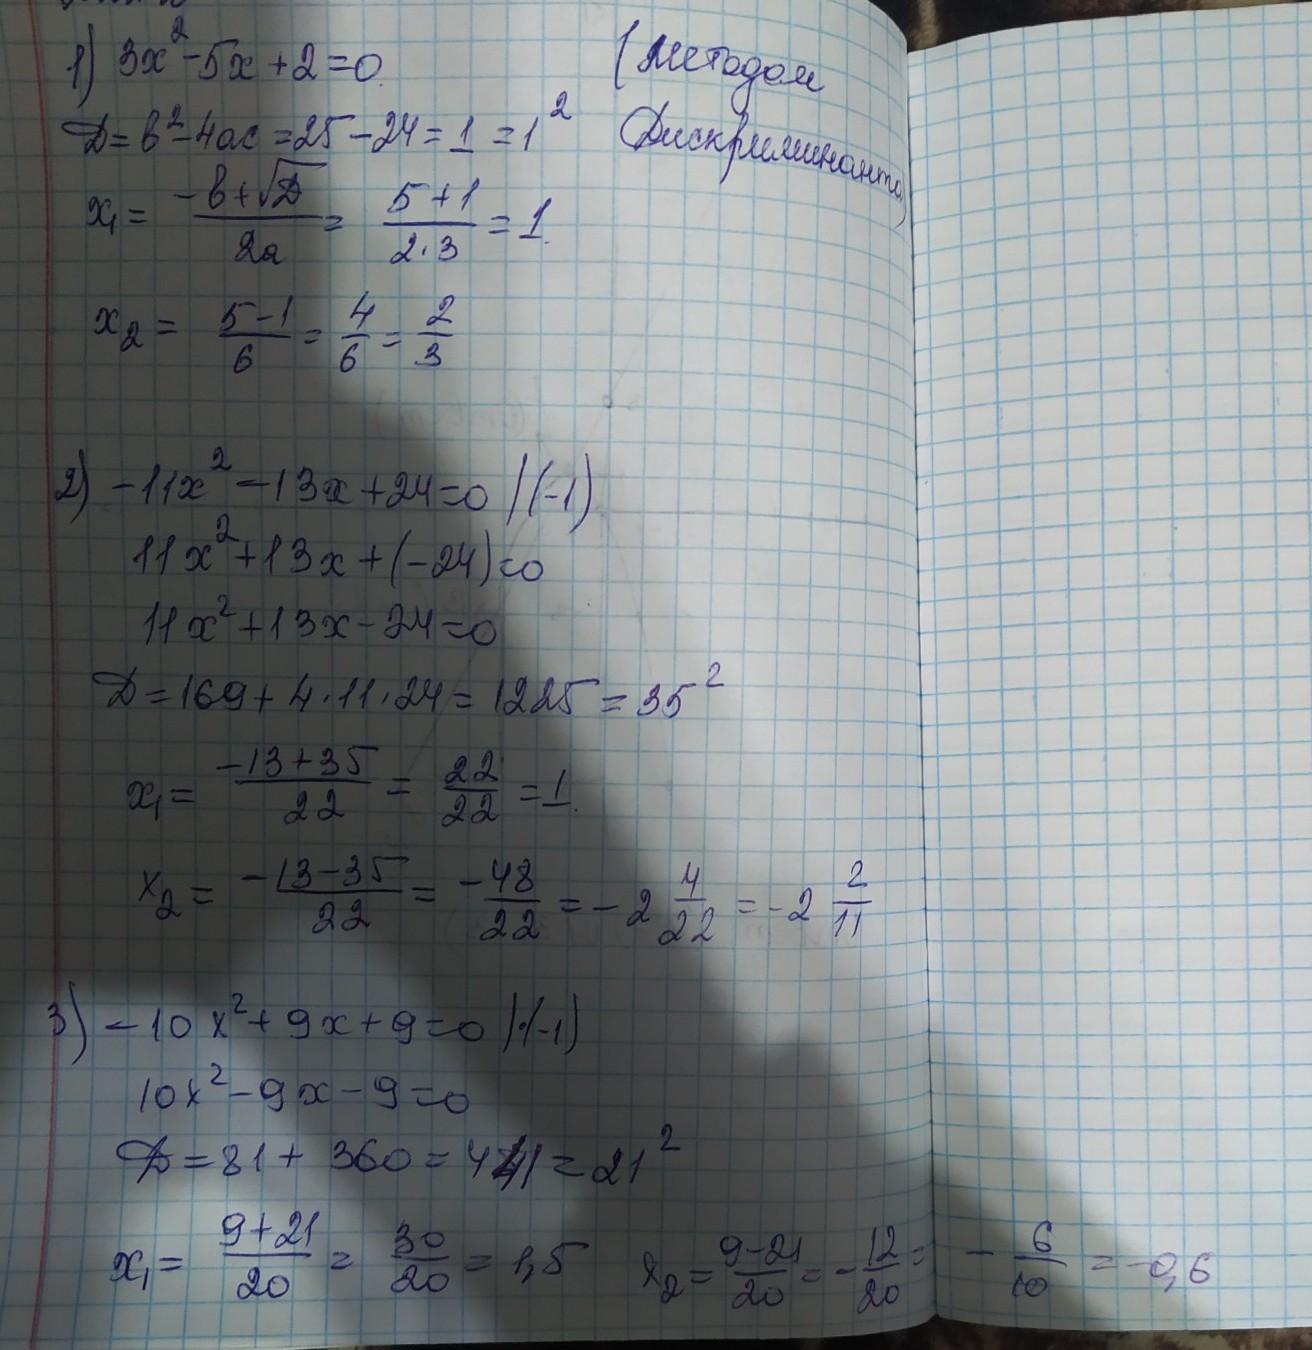 1) 3x²-5x+2=0. (методом
Д=b²-4ac=25-24=1=1² Дискриминанта)
x₁= (-b+√Д)/2a = (5+1)/(2·3) = 1.
x₂= (5-1)/6 = 4/6 = 2/3
2) -11x²-13x+24=0 |(-1)
11x²+13x+(-24)=0
11x²+13x-24=0
Д=169+4·11·24=1225=35²
x₁= (-13+35)/22 = 22/22 =1.
x₂= (-13-35)/22 = -48/22 = -2 4/22 = -2 2/11
3) -10x²+9x+9=0 |·(-1)
10x²-9x-9=0
Д=81+360=441=21²
x₁= (9+21)/20 = 30/20 = 1,5 x₂= (9-21)/20 = -12/20 = -6/10 = -0,6